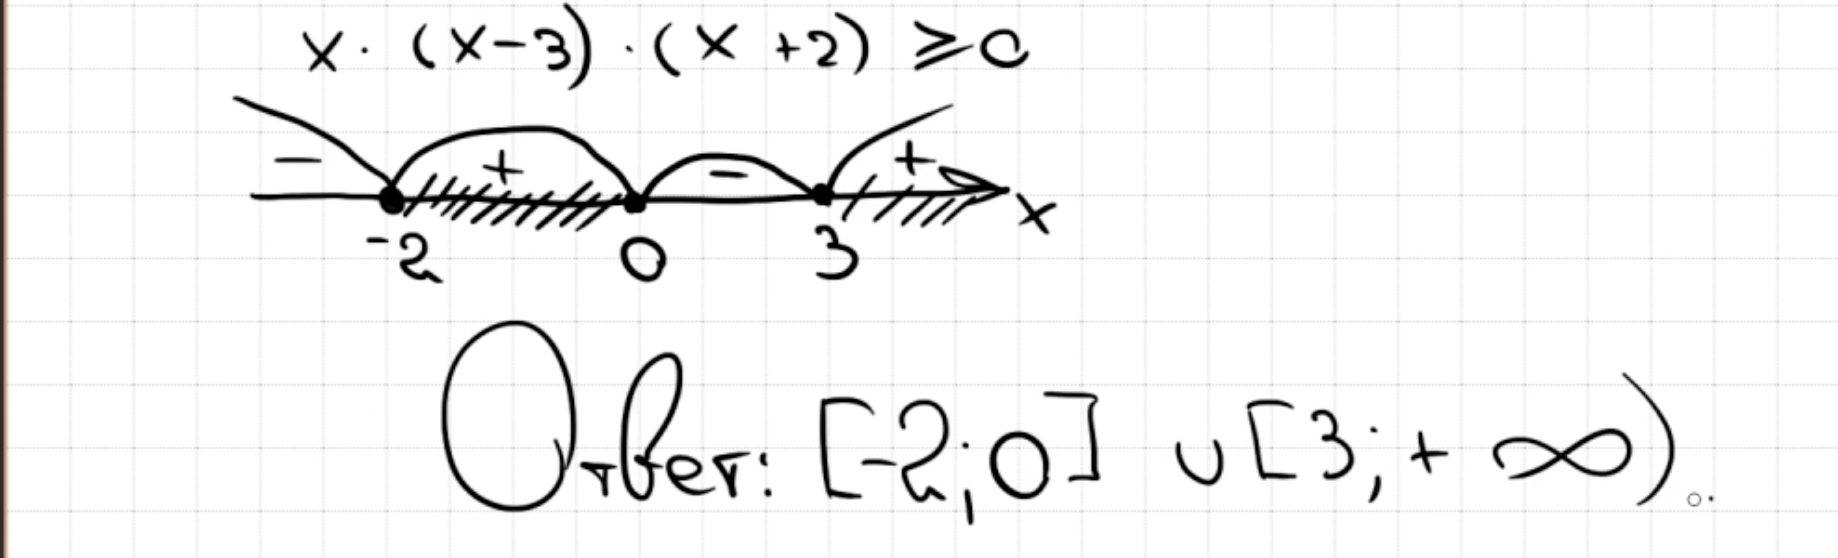 x · (x-3) · (x+2) ⩾ 0
- + - +
-2 0 3 x
Ответ: [-2; 0] ∪ [3; +∞).